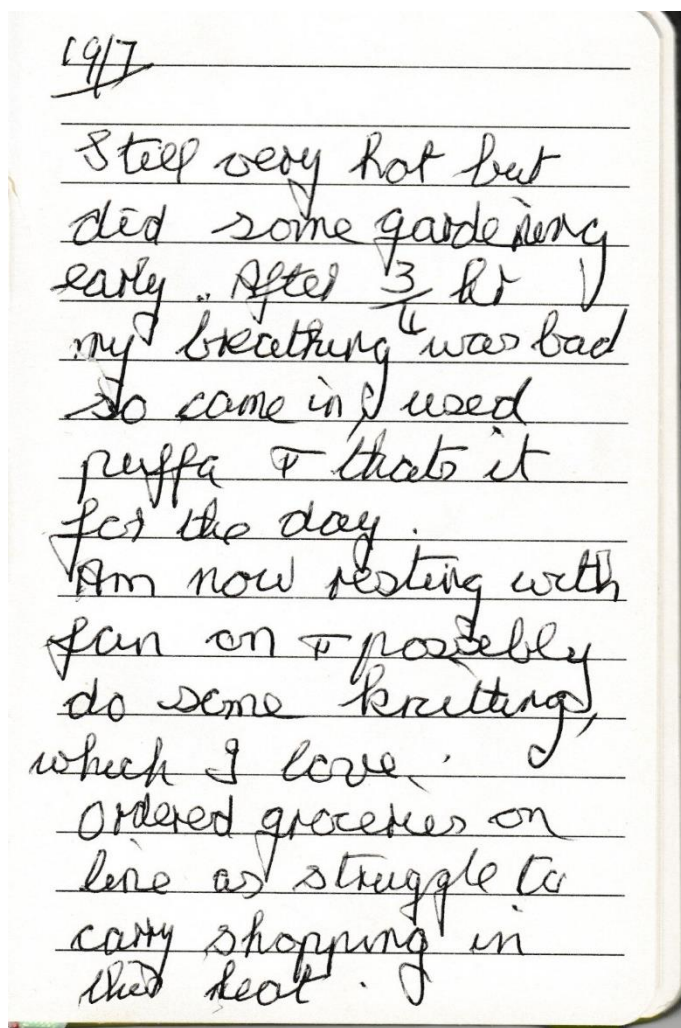 19/7
Still very hot but
did some gardening
early. After 3/4 hr
my breathing was bad
so came in, used
puffa + thats it
for the day.
Am now resting with
fan on + possibly
do some knitting,
which I love.
Ordered groceries on
line as struggle to
carry shopping in
this heat.